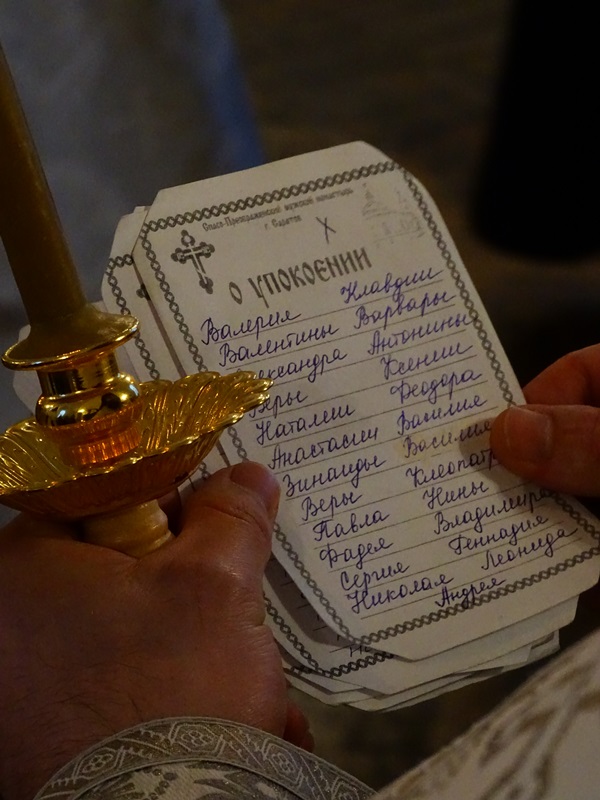 Спасо-Преображенский мужской монастырь
г. Саратов
О УПОКОЕНИИ
Валерия Клавдии
Валентины Варвары
Антонины
Ксении
Наталии Феодора
Анастасии Василия
Зинаиды Василия
Веры
Павла Нины
Фадея Владимира
Сергия Геннадия
Николая Леонида
Андрея